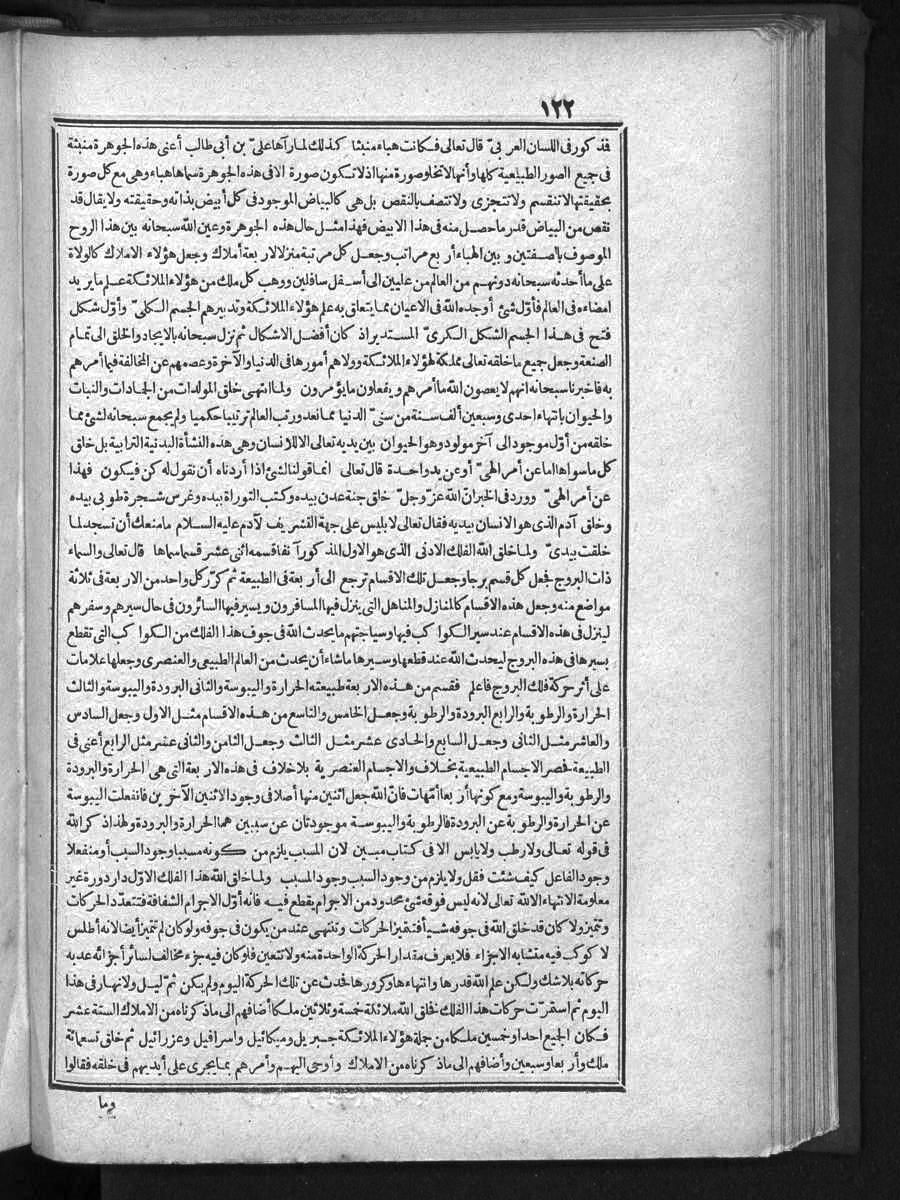 ١٢٢
فذكور فى اللسان العربىّ قال تعالى فكانت هباء منبثا كذلك لما رآها علىّ بن أبى طالب أعنى هذه الجوهرة منبثة
فى جميع الصور الطبيعية كلها وأنها لا تخلو صورة منها اذ لا تكون صورة الا فى هذه الجوهرة سماها هباء وهى مع كل صورة
بحقيقتها لا تنقسم ولا تتجزى ولا تتصف بالنقص بل هى كالبياض الموجود فى كل أبيض بذاته وحقيقته ولا يقال قد
نقص من البياض قدر ما حصل منه فى هذا الابيض فهذا مثل حال هذه الجوهرة وعين الله سبحانه بين هذا الروح
الموصوف بالصفتين وبين الهباء أربع مراتب وجعل كل مرتبة منزلا لاربعة أملاك وجعل هؤلاء الاملاك كالولاة
على ما أحدثه سبحانه دونهم من العالم من عليين الى أسفل سافلين ووهب كل ملك من هؤلاء الملائكة علم ما يريد
امضاءه فى العالم فأوّل شئ أوجده الله فى الاعيان مما يتعلق به علم هؤلاء الملائكة وتدبيرهم الجسم الكلىّ وأوّل شكل
فتح فى هذا الجسم الشكل الكرىّ المستدير اذ كان أفضل الاشكال ثم نزل سبحانه بالايجاد والخلق الى تمام
الصنعة وجعل جميع ما خلقه تعالى مملكة لهؤلاء الملائكة وولاهم أمورها فى الدنيا والآخرة وعصمهم عن المخالفة فيما أمرهم
به فاخبرنا سبحانه انهم لا يعصون الله ما أمرهم ويفعلون ما يؤمرون ولما انتهى خلق المولدات من الجمادات والنبات
والحيوان بانتهاء احدى وسبعين ألف سنة من سنىّ الدنيا مما نعد ورتب العالم ترتيبا حكميا ولم يجمع سبحانه لشئ مما
خلقه من أوّل موجود الى آخر مولود وهو الحيوان بين يديه تعالى الا للانسان وهى هذه النشأة البدنية الترابية بل خلق
كل ما سواها اما عن أمر الهىّ أو عن يد واحدة قال تعالى انما قولنا لشئ اذا أردناه أن نقول له كن فيكون فهذا
عن أمر الهىّ وورد فى الخبر انّ الله عزّ وجلّ خلق جنة عدن بيده وكتب التوراة بيده وغرس شجرة طوبى بيده
وخلق آدم الذى هو الانسان بيديه فقال تعالى لابليس على جهة التشريف لآدم عليه السلام ما منعك أن تسجد لما
خلقت بيدىّ ولما خلق الله الفلك الادنى الذى هو الاول المذكور آنفا قسمه اثنى عشر قسما سماها قال تعالى والسماء
ذات البروج فجعل كل قسم برجا وجعل تلك الاقسام ترجع الى أربعة فى الطبيعة ثم كرّر كل واحد من الاربعة فى ثلاثة
مواضع منه وجعل هذه الاقسام كالمنازل والمناهل التى ينزل فيها المسافرون ويسير فيها السائرون فى حال سيرهم وسفرهم
لينزل فى هذه الاقسام عند سير الكواكب فيها وسياحتهم ما يحدث الله فى جوف هذا الفلك من الكواكب التى تقطع
بسيرها فى هذه البروج ليحدث الله عند قطعها وسيرها ما شاء أن يحدث من العالم الطبيعى والعنصرى وجعلها علامات
على أثر حركة فلك البروج فاعلم فقسم من هذه الاربعة طبيعته الحرارة واليبوسة والثانى البرودة واليبوسة والثالث
الحرارة والرطوبة والرابع البرودة والرطوبة وجعل الخامس والتاسع من هذه الاقسام مثل الاول وجعل السادس
والعاشر مثل الثانى وجعل السابع والحادى عشر مثل الثالث وجعل الثامن والثانى عشر مثل الرابع أعنى فى
الطبيعة فحصر الاجسام الطبيعية بخلاف والاجسام العنصرية بلا خلاف فى هذه الاربعة التى هى الحرارة والبرودة
والرطوبة واليبوسة ومع كونها أربعا أمّهات فانّ الله جعل اثنين منها أصلا فى وجود الاثنين الآخرين فانفعلت اليبوسة
عن الحرارة والرطوبة عن البرودة فالرطوبة واليبوسة موجودتان عن سببين هما الحرارة والبرودة ولهذا ذكر الله
فى قوله تعالى ولا رطب ولا يابس الا فى كتاب مبين لان المسبب يلزم من كونه مسببا وجود السبب أو منفعلا
وجود الفاعل كيف شئت فقل ولا يلزم من وجود السبب وجود المسبب ولما خلق الله هذا الفلك الاوّل دار دورة غير
معلومة الانتهاء الا لله تعالى لانه ليس فوقه شئ محدود من الاجرام يقطع فيه فانه أوّل الاجرام الشفافة فتتعدّد الحركات
وتتميز ولا كان قد خلق الله فى جوفه شيأ فتتميز الحركات وتنتهى عند من يكون فى جوفه ولو كان لم تتميز أيضا لانه أطلس
لا كوكب فيه متشابه الاجزاء فلا يعرف مقدار الحركة الواحدة منه ولا تتعين فلو كان فيه جزء مخالف لسائر أجزائه عد به
حركاته بلا شك ولكن علم الله قدرها وانتهاءها وكرورها فحدث عن تلك الحركة اليوم ولم يكن ثمّ ليل ولا نهار فى هذا
اليوم ثم استمرّت حركات هذا الفلك فخلق الله ملائكة خمسة وثلاثين ملكا أضافهم الى ما ذكرناه من الاملاك الستة عشر
فكان الجميع احدا وخمسين ملكا من جملة هؤلاء الملائكة جبريل وميكائيل واسرافيل وعزرائيل ثم خلق تسعمائة
ملك وأربعا وسبعين وأضافهم الى ما ذكرناه من الاملاك وأوحى اليهم وأمرهم بما يجرى على أيديهم فى خلقه فقالوا
وما